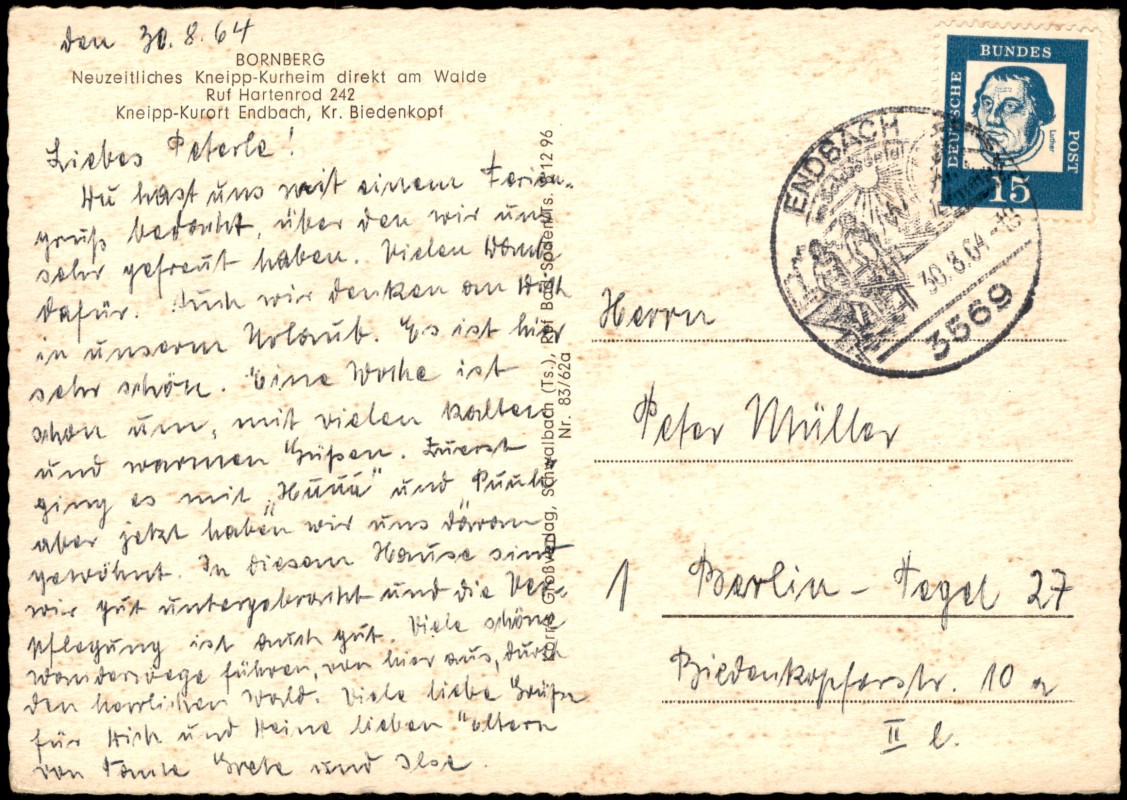 den 30.8.64
BORNBERG
Neuzeitliches Kneipp-Kurheim direkt am Walde
Ruf Hartenrod 242
Kneipp-Kurort Endbach, Kr. Biedenkopf
Liebes Peterle!
Du hast uns mit einem Ferien-
gruß bedacht, über den wir uns
sehr gefreut haben. Vielen Dank
dafür. Auch wir denken an Dich
in unserm Urlaub. Es ist hier
sehr schön. Eine Woche ist
schon um, mit vielen kalten
und warmen Güssen. Zuerst
ging es mit „Huuu" und „Puuh"
aber jetzt haben wir uns daran
gewöhnt. In diesem Hause sind
wir gut untergebracht und die Ver-
pflegung ist auch gut. Viele schöne
Wanderwege führen, von hier aus, durch
den herrlichen Wald. Viele liebe Grüße
für Dich und Deine lieben Eltern
von Tante Grete und Ilse.
Großverlag, Schwalbach (Ts.), Ruf Bad Soden/Ts. 12 96
Nr. 83/62a
DEUTSCHE BUNDES POST
Luther
15
ENDBACH
30.8.64
3569
Herrn
Peter Müller
1 Berlin - Tegel 27
Biedenkopferstr. 10 a
II l.